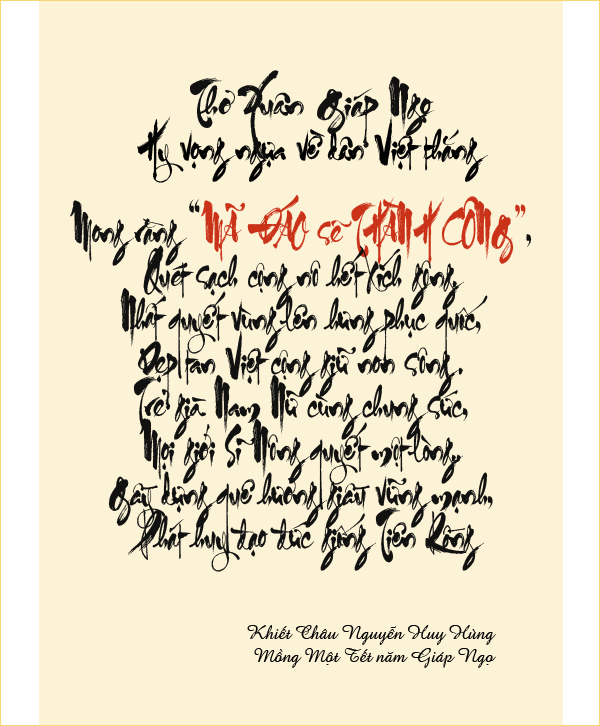 Thơ Xuân Giáp Ngọ
Hy vọng ngựa về dân Việt thắng
Mong rằng “MÃ ĐÁO sẽ THÀNH CÔNG”,
Quét sạch cộng nô hết kích gông,
Nhất quyết vùng lên hùng phục quốc,
Dẹp tan Việt cộng giữ non sông.
Trẻ già Nam Nữ cùng chung sức,
Mọi giới Sĩ Nông quyết một lòng,
Gầy dựng quê hương giàu vững mạnh,
Phát huy đạo đức giống Tiên Rồng
Khiết Châu Nguyễn Huy Hùng
Mồng Một Tết năm Giáp Ngọ